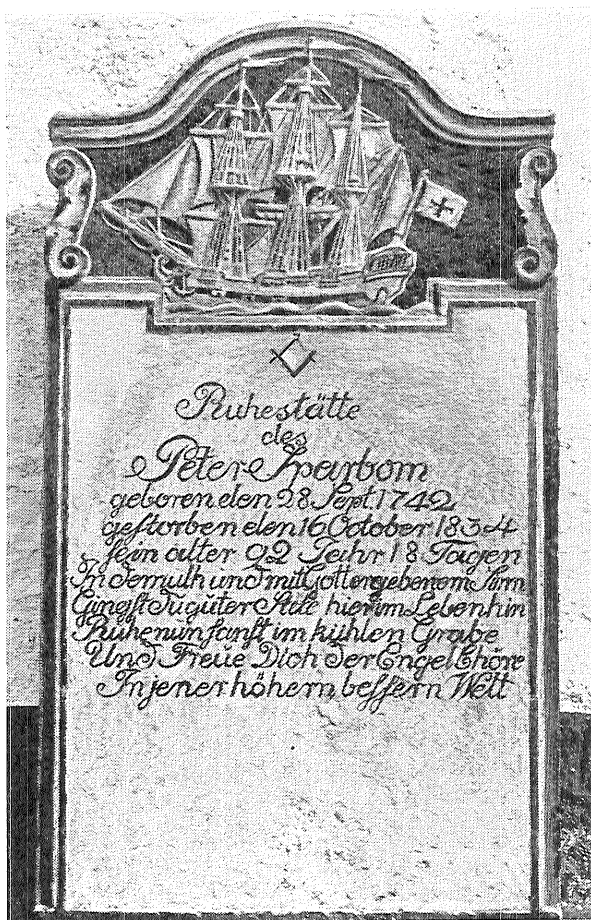 Ruhestätte
des
Peter Sparbom
geboren den 28 Sept. 1742
gestorben den 16 October 1834
sein alter 92 Jahr 18 Tagen
In Demuth und mit Gott ergebenem Sinn
Gingst Du guter Alte hier im Leben hin
Ruhe nun sanft im kühlen Grabe
Und Freue Dich der Engel Chöre
In jener höhern bessern Welt